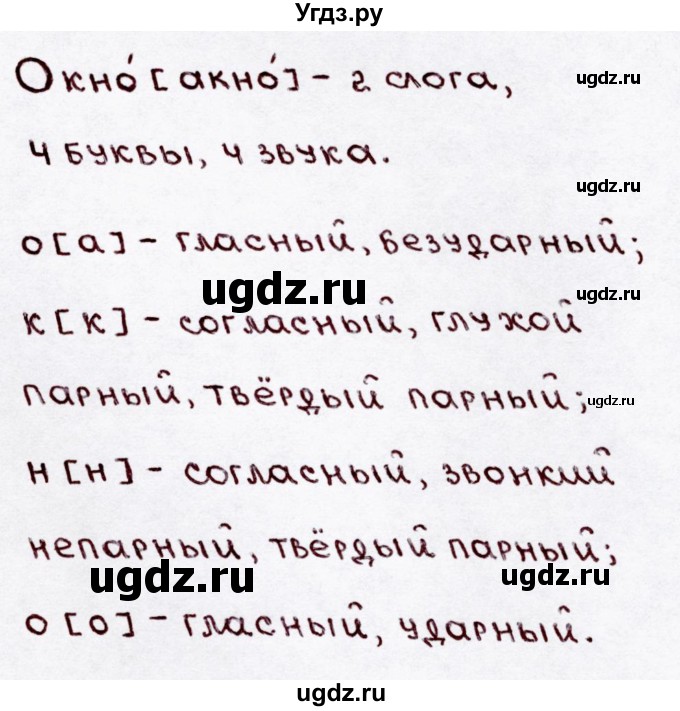 Угдз.ру
Окно́ [акно́] - 2 слога,
ugdz.ru
4 буквы, 4 звука.
ugdz.ru
о [а] - гласный, безударный;
ugdz.ru
ugdz.ru
к [к] - согласный, глухой
парный, твёрдый парный;
ugdz.ru
н [н] - согласный, звонкий
непарный, твёрдый парный;
ugdz.ru
ugdz.ru
о [о] - гласный, ударный.
ugdz.ru